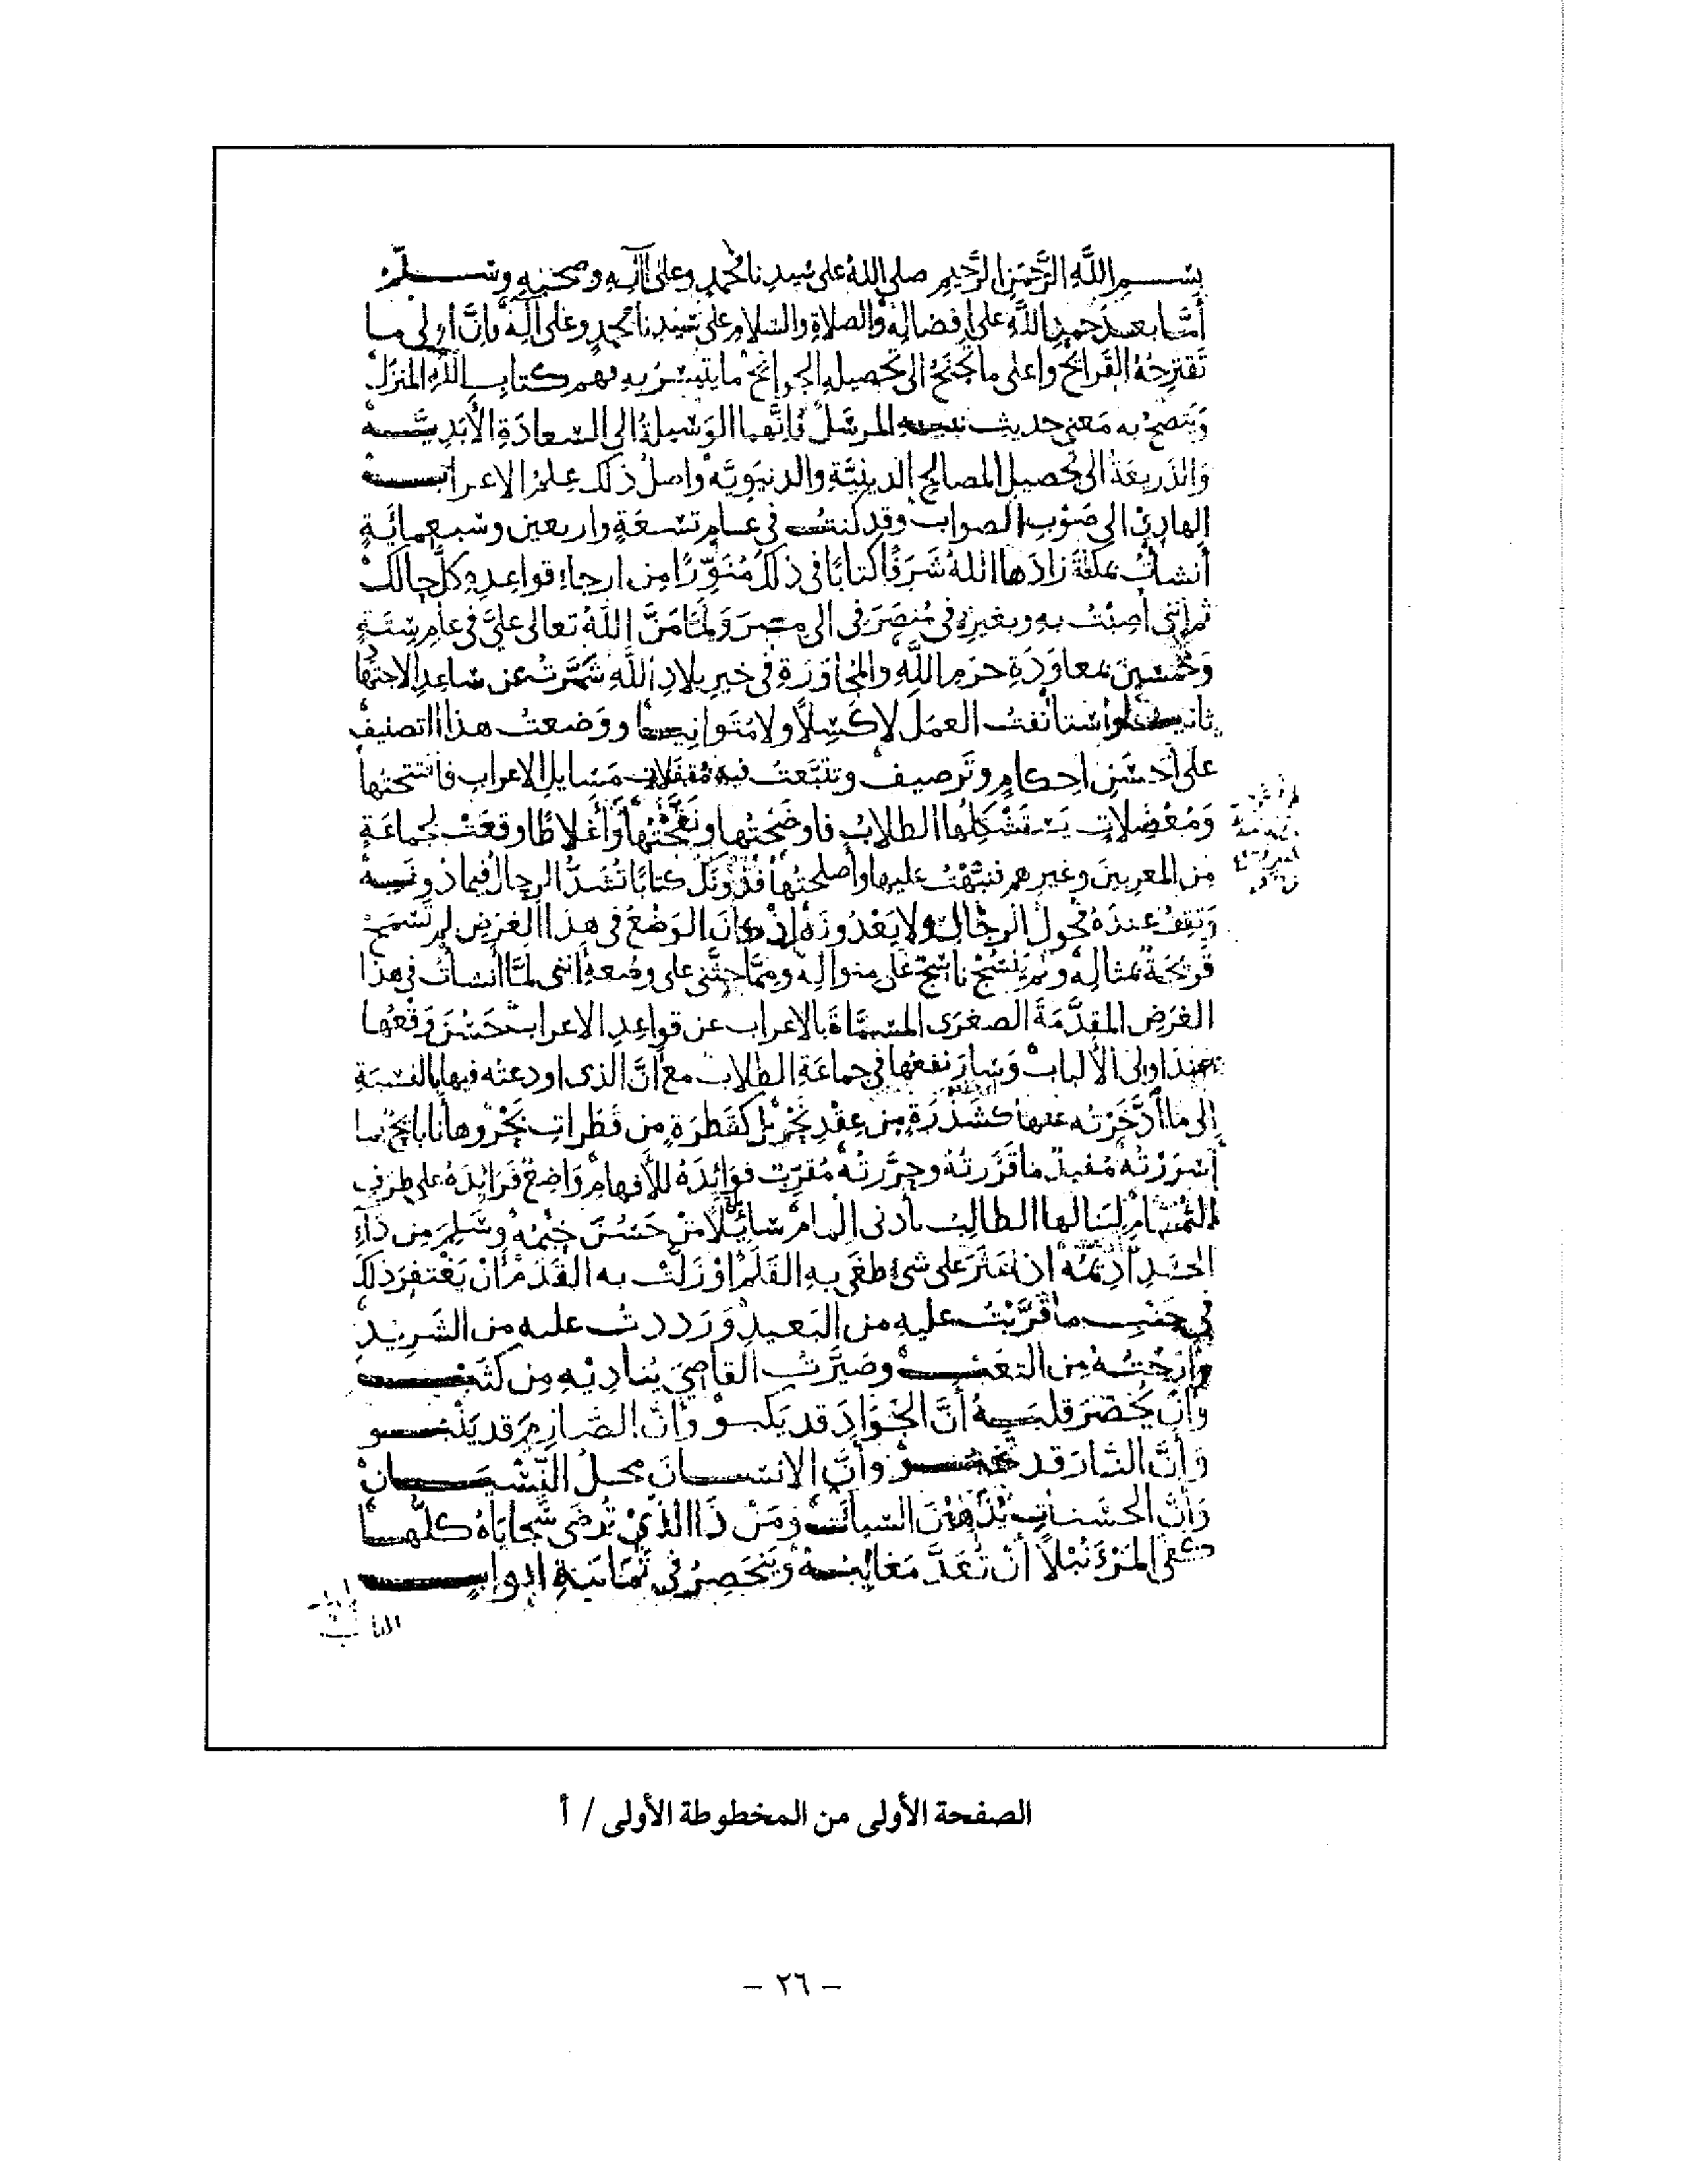 بسم الله الرحمن الرحيم صلى الله على سيدنا محمد وعلى آله وصحبه وسلم
أما بعد حمد الله على إفضاله والصلاة والسلام على سيدنا محمد وعلى آله فإن اولى ما
تقترحه القرائح واعلى ما تجنح الى تحصيله الجوانح ما يتيسر به فهم كتاب الله المنزل
ويتضح به معنى حديث نبيه المرسل فانهما الوسيلة الى السعادة الأبدية
والذريعة الى تحصيل المصالح الدينية والدنيوية واصل ذلك علم الاعراب
الهادي الى صوب الصواب وقد كنت في عام تسعة واربعين وسبعمائة
أنشأت بمكة زادها الله شرفا كتابا في ذلك منورا من ارجاء قواعده كل حالك
ثم انني أصبت به وبغيره في منصرفي الى مصر ولما من الله تعالى علي في عام ستة
وخمسين بمعاودة حرم الله والمجاورة في خير بلاد الله شمرت عن ساعد الاجتهاد
ثانيا واستأنفت العمل لا كسلا ولا متوانيا ووضعت هذا التصنيف
على أحسن احكام وترصيف وتتبعت فيه مقفلات مسايل الاعراب فافتتحتها
ومعضلات يستشكلها الطلاب فاوضحتها ونقحتها وأغلاطا وقعت لجماعة
من المعربين وغيرهم فنبهت عليها وأصلحتها فدونك كتابا تشد الرحال فيما دونه
وتقف عنده فحول الرجال ولا يعدونه إذ كان الوضع في هذا الغرض لم تسمح
قريحة بمثاله ولم ينسج ناسج على منواله ومما حثني على وضعه أنني لما أنشأت في هذا
الغرض المقدمة الصغرى المسماة بالاعراب عن قواعد الاعراب حسن وقعها
عند اولى الألباب وسار نفعها في جماعة الطلاب مع أن الذي اودعته فيها بالنسبة
إلى ما أدخرته عنها كشذرة من عقد نحر بل كقطرة من قطرات بحر وها أنا بائح بما
أسررته مفيد ما قررته وحررته مقرب فوائده للأفهام واضع فرائده على طرف
الثمام لينالها الطالب بأدنى المام سائلا من حسن خيمه وسلم من داء
الحسد أديمه اذا عثر على شئ طغى به القلم او زلت به القدم أن يغتفر ذلك
في جنب ما قربت عليه من البعيد ورددت عليه من الشريد
وأرحته من التعب وصيرت القاصي يناديه من كثب
وأن يحضر قلبه أن الجواد قد يكبو وأن الصارم قد ينبو
وأن النار قد تخبو وأن الانسان محل النسيان
وأن الحسنات يذهبن السيات ومن ذا الذي ترضى سجاياه كلها
كفى المرء نبلا أن تعد معايبه وينحصر في ثمانية ابواب
الصفحة الأولى من المخطوطة الأولى / أ
– ٢٦ –